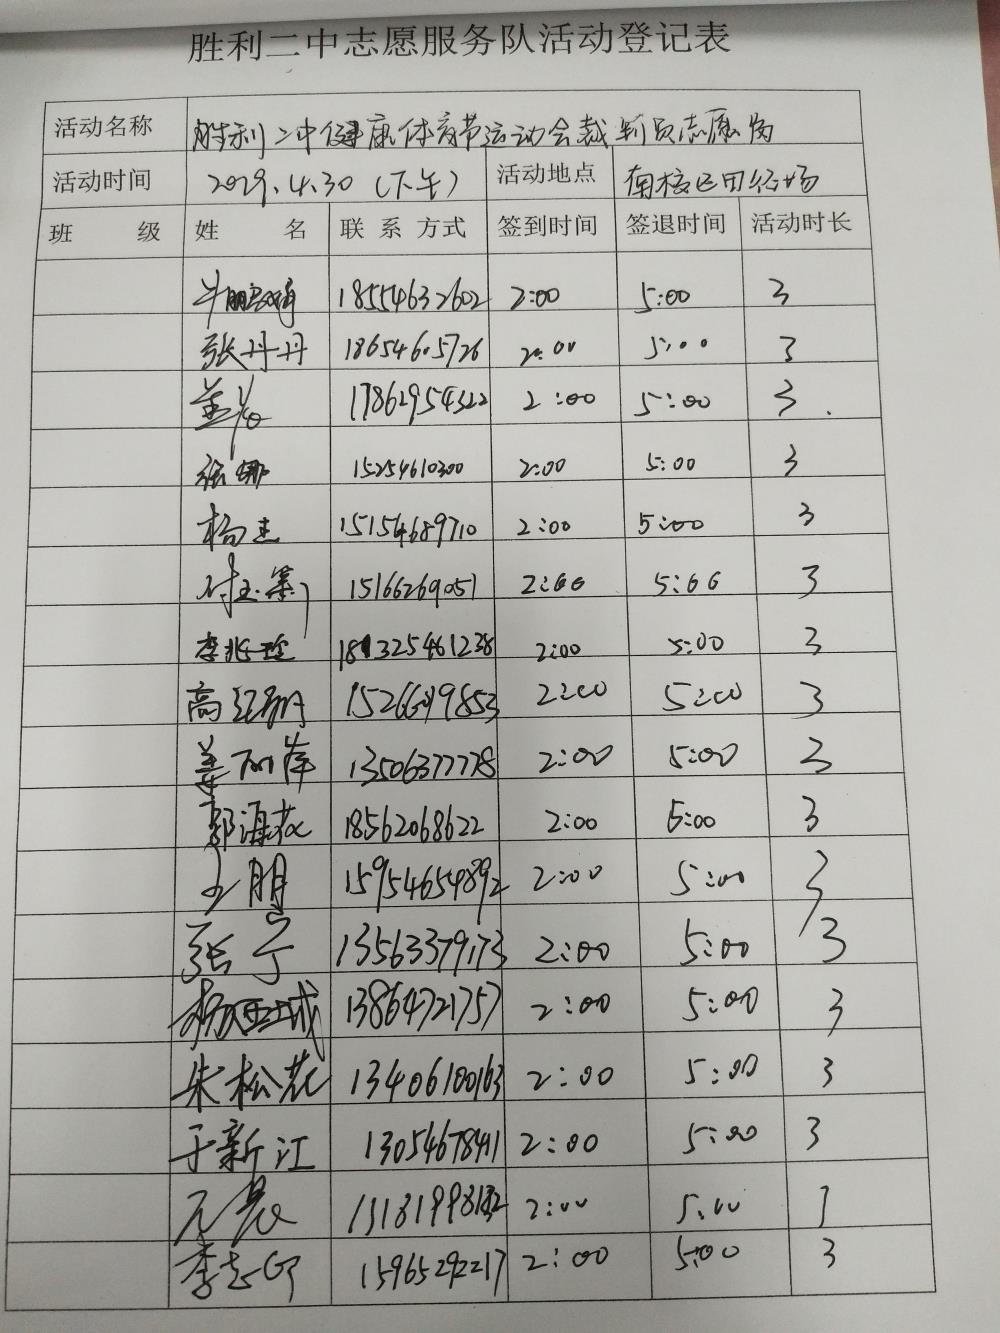 胜利二中志愿服务队活动登记表
活动名称 胜利二中健康体育节运动会裁判员志愿岗
活动时间 2029.4.30（下午） 活动地点 南校区田径场
班 级 姓 名 联 系 方式 签到时间 签退时间 活动时长
18554632602 2:00 5:00 3
张丹丹 18654605726 2:00 5:00 3
17862954322 2:00 5:00 3
张娜 15254610300 2:00 5:00 3
杨杰 15154689710 2:00 5:00 3
15166269051 2:00 5:00 3
李兆玲 2:00 5:00 3
高 2:00 5:00 3
姜丽萍 13506377778 2:00 5:00 3
郭海荻 18562068622 2:00 5:00 3
朋 15954654892 2:00 5:00 3
张宁 13563379173 2:00 5:00 3
杨 城 13864721757 2:00 5:00 3
朱松花 13406100163 2:00 5:00 3
于新江 13054678411 2:00 5:00 3
2:00 5:00
李志 15965292217 2:00 5:00 3